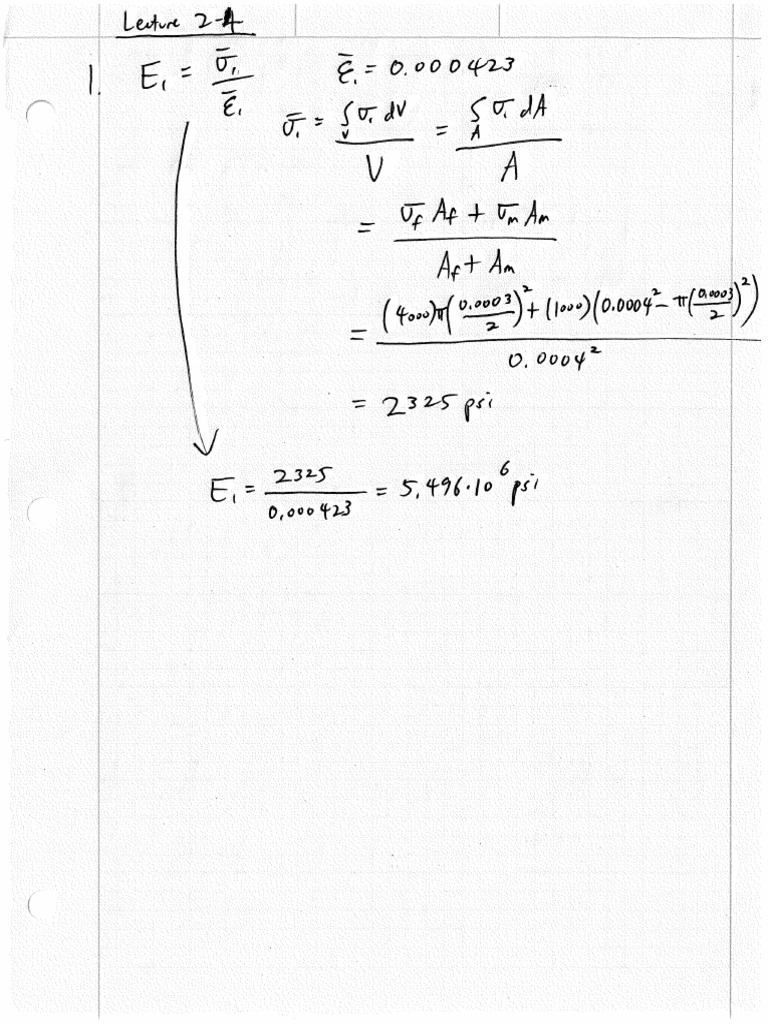 Lecture 2-4
1. E₁ = σ̄₁ / ε̄₁    ε̄₁ = 0.000423
σ̄₁ = ∫_V σ₁ dV / V = ∫_A σ₁ dA / A
= (σ̄_f A_f + σ̄_m A_m) / (A_f + A_m)
= ((4000)π(0.0003/2)² + (1000)(0.0004² − π(0.0003/2)²)) / 0.0004²
= 2325 psi
E₁ = 2325 / 0.000423 = 5.496·10⁶ psi